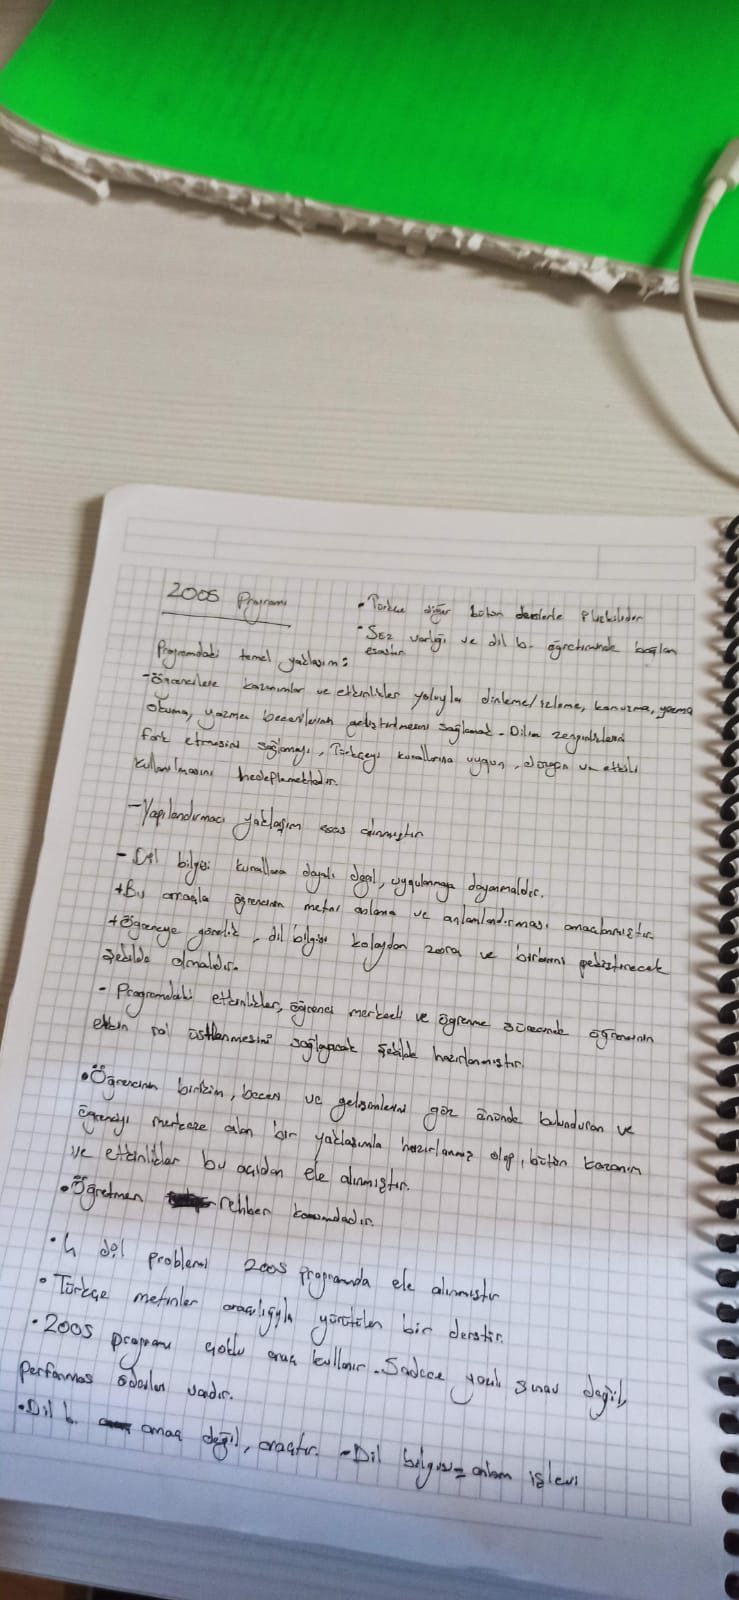 2005 Programı
• Türkçe diğer bütün derslerle ilişkilidir
• Söz varlığı ve dil b. öğretiminde bağlam
esastır
Programdaki temel yaklaşım:
- Öğrencilere kazanımlar ve etkinlikler yoluyla dinleme/izleme, konuşma,
okuma, yazma becerilerinin geliştirilmesini sağlamak. Dilin zenginliklerini
fark etmesini sağlamayı, Türkçeyi kurallarına uygun, düzgün ve etkili
kullanılmasını hedeflemektedir.
- Yapılandırmacı yaklaşım esas alınmıştır
- Dil bilgisi kurallara dayalı değil, uygulamaya dayanmalıdır.
+ Bu amaçla öğrencinin metni anlama ve anlamlandırması amaçlanmıştır.
+ Öğrenciye görelik, dil bilgisi kolaydan zora ve birbirini pekiştirecek
şekilde olmalıdır.
- Programdaki etkinlikler, öğrenci merkezli ve öğrenme sürecinde öğrencinin
etkin rol üstlenmesini sağlayacak şekilde hazırlanmıştır.
• Öğrencinin birikim, beceri ve gelişimlerini göz önünde bulunduran ve
öğrenciyi merkeze alan bir yaklaşımla hazırlanmış olup, bütün kazanım
ve etkinlikler bu açıdan ele alınmıştır.
• Öğretmen rehber konumdadır.
• 4 dil problemi 2005 programında ele alınmıştır
• Türkçe metinler aracılığıyla yürütülen bir derstir.
• 2005 programı çoklu araç kullanır. Sadece yazılı sınav değil,
performas ödevleri vardır.
• Dil b. amaç değil, araçtır. - Dil bilgisi = anlam işlevi